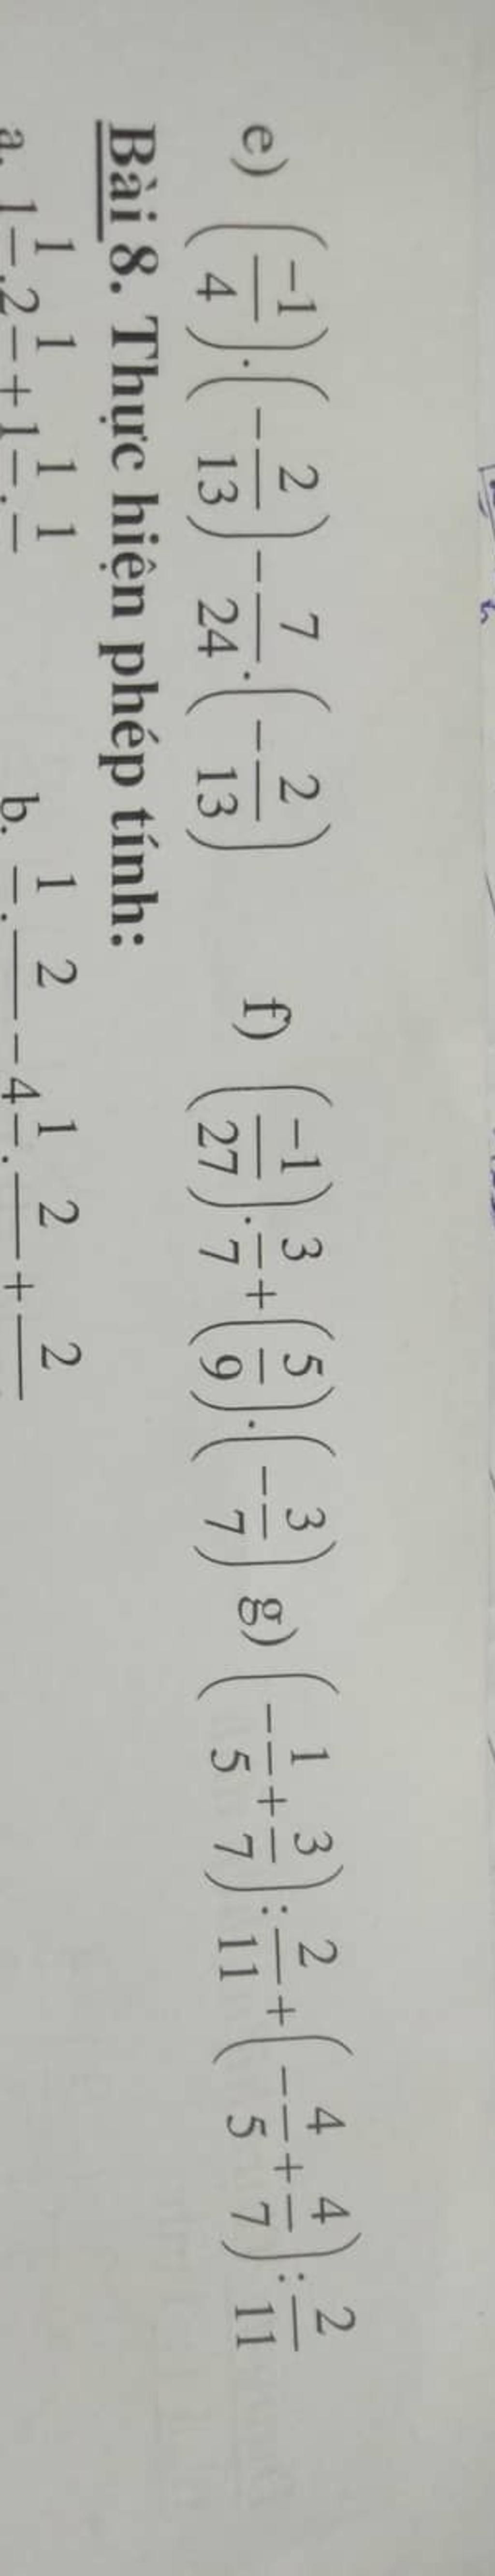 e) (-1/4).(-2/13)-7/24.(-2/13) f) (-1/27).3/7+(5/9).(-3/7) g) (-1/5+3/7):2/11+(-4/5+4/7):2/11
Bài 8. Thực hiện phép tính:
a. b.